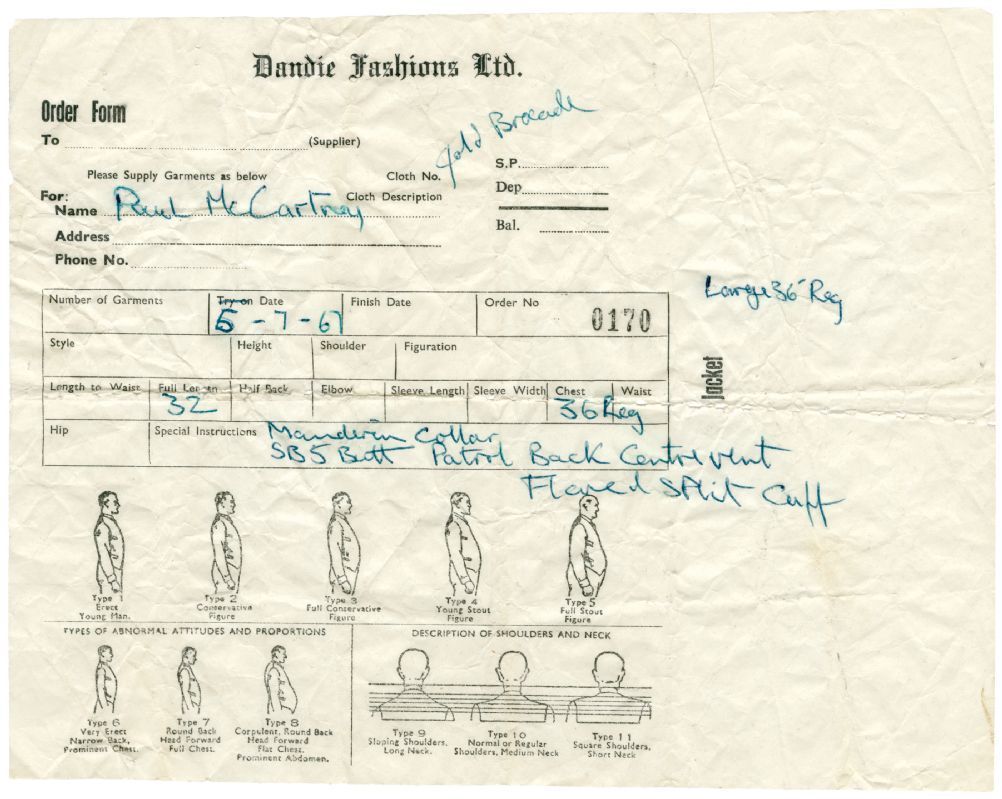 Dandie Fashions Ltd.
Order Form
To (Supplier)
Gold Brocade
Please Supply Garments as below Cloth No. S.P.
For: Cloth Description Dep
Name Paul McCartney
Address Bal.
Phone No.
Large 36 Reg
Number of Garments Try-on Date Finish Date Order No
5-7-67 0170
Style Height Shoulder Figuration
Jacket
Length to Waist Full Length Half Back Elbow Sleeve Length Sleeve Width Chest Waist
32 36 Reg
Hip Special Instructions Manderin Collar
SB5 Butt Patrol Back Centre vent
Flared Split Cuff
Type 1 Erect Young Man.
Type 2 Conservative Figure
Type 3 Full Conservative Figure
Type 4 Young Stout Figure
Type 5 Full Stout Figure
TYPES OF ABNORMAL ATTITUDES AND PROPORTIONS
DESCRIPTION OF SHOULDERS AND NECK
Type 6 Very Erect Narrow Back, Prominent Chest.
Type 7 Round Back Head Forward Full Chest.
Type 8 Corpulent, Round Back Head Forward Flat Chest. Prominent Abdomen.
Type 9 Sloping Shoulders, Long Neck.
Type 10 Normal or Regular Shoulders, Medium Neck
Type 11 Square Shoulders, Short Neck